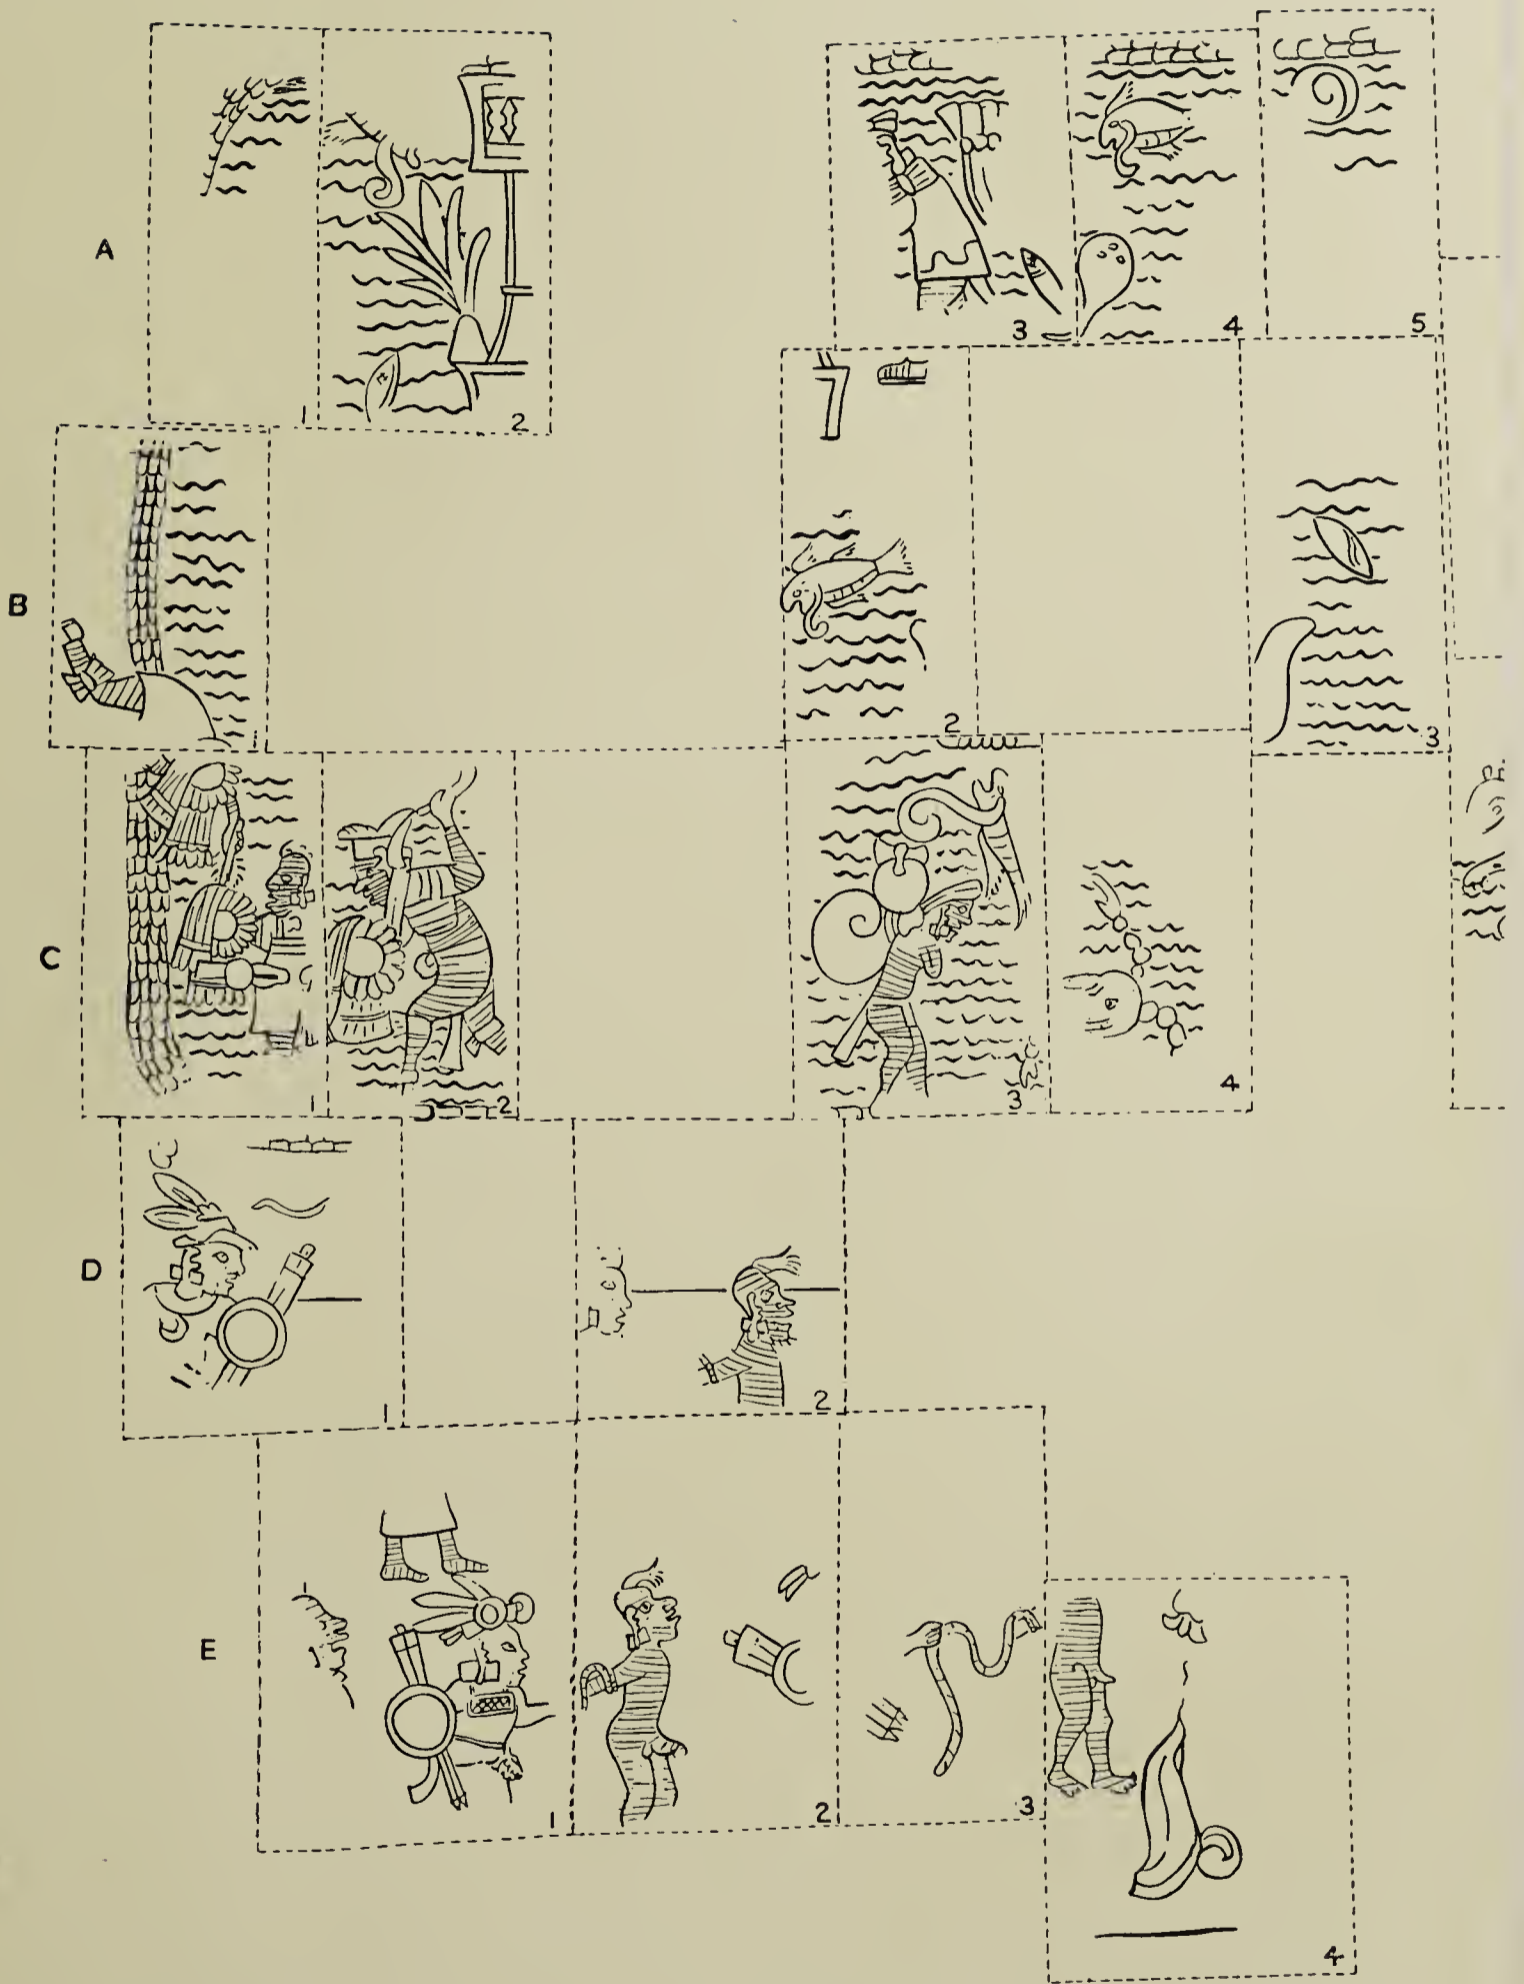 A
1 2 3 4 5
B
1 2 3
C
1 2 3 4
D
1 2
E
1 2 3
4